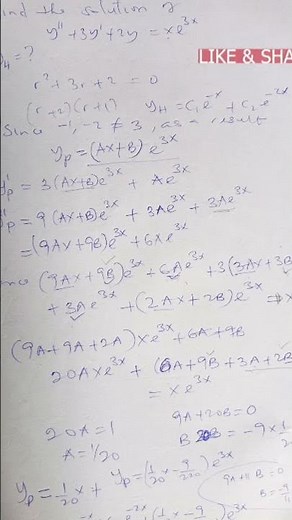 ind the solution of
y'' + 3y' + 2y = xe^{3x}
y_H = ?
LIKE & SHA
r² + 3r + 2 = 0
(r+2)(r+1) y_H = c₁e^{-x} + c₂e^{-2x}
Since -1, -2 ≠ 3, as a result
y_p = (Ax+B)e^{3x}
y'_p = 3(Ax+B)e^{3x} + Ae^{3x}
y''_p = 9(Ax+B)e^{3x} + 3Ae^{3x} + 3Ae^{3x}
= (9Ax+9B)e^{3x} + 6Ae^{3x}
(9Ax+9B)e^{3x} + 6Ae^{3x} + 3(3Ax+3B
+ 3Ae^{3x} + (2Ax+2B)e^{3x} ⇒ x
(9A+9A+2A)xe^{3x} + 6A + 9B
20Axe^{3x} + (6A+9B+3A+2B
= xe^{3x}
20A = 1 9A+20B = 0
A = 1/20 B = -9 × 1/2
y_p = 1/20 x + y_p = (1/20 x - 9/)e^{3x}
9A+ B = 0
B = -9/
e^{-2x} + (1/ x - 9/)e^{3x}